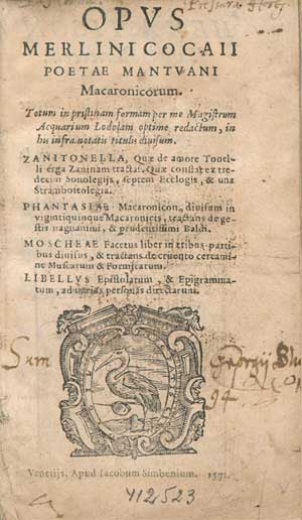 OPVS
MERLINI COCAII
POETAE MANTVANI
Macaronicorum.
Totum in pristinam formam per me Magistrum
Acquarium Lodolam optime redactum, in
his infra notatis titulis diuisum.
ZANITONELLA, Quæ de amore Tonel-
li erga Zaninam tractat. Quæ constat ex tre-
decim Sonolegijs, septem Ecclogis, & vna
Strambottolegia.
PHANTASIAE Macaronicon, diuisum in
vigintiquinque Macaronicis, tractans de ge-
stis magnanimi, & prudentissimi Baldi.
MOSCHEAE Facetus liber in tribus parti-
bus diuisus, & tractans de cruento certami-
ne Muscarum & Formicarum.
LIBELLVS Epistolarum, & Epigramma-
tum, ad varias personas directarum.
Sum Georgij
94
Venetijs, Apud Iacobum Simbenium.
412523